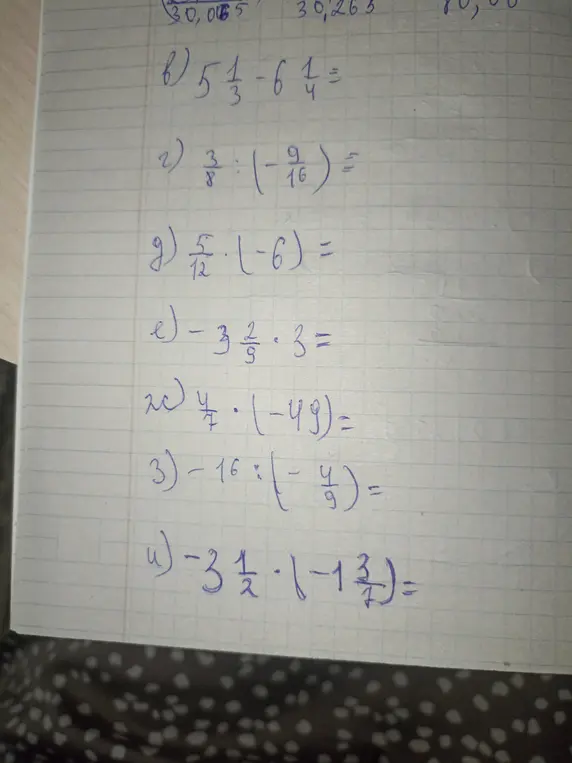 30,065 30,263
в) 5 1/3 - 6 1/4 =
г) 3/8 : (- 9/16) =
д) 5/12 · (-6) =
е) - 3 2/9 · 3 =
ж) 4/7 · (-49) =
з) - 16 : (- 4/9) =
и) - 3 1/2 · (-1 3/7) =